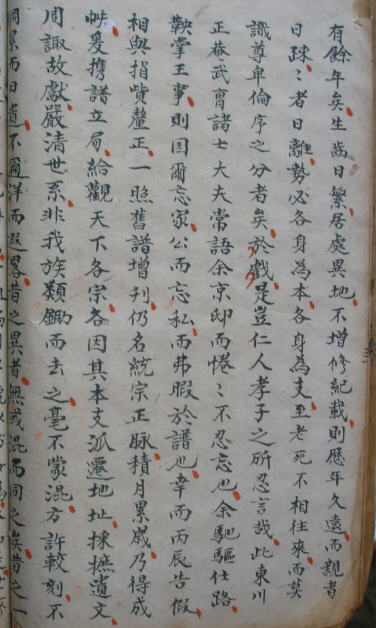 有餘年矣生齒日繁居處異地不增修紀載則歷年久遠而親者
日踈〻者日離勢必各身為本各身為支至老死不相往來而莫
識尊卑倫序之分者矣於戲是豈仁人孝子之所忍言哉此東川
正菴武胄諸士大夫常語余京邸而惓〻不忍忘也余馳驅仕路
鞅掌王事則国爾忘家公而忘私而弗暇於譜也幸而丙辰告假
相與捐貲釐正一照舊譜增刋仍名統宗正脉積月累歲乃得成
帙爰携譜立局給觀天下各宗各因其本支派遷地址採摭遺文
周諏故獻嚴清世系非我族類鋤而去之毫不蒙混方許較刻不
而日遺不爾洋而叚畧昔之異者無或混而同之矣昔之一